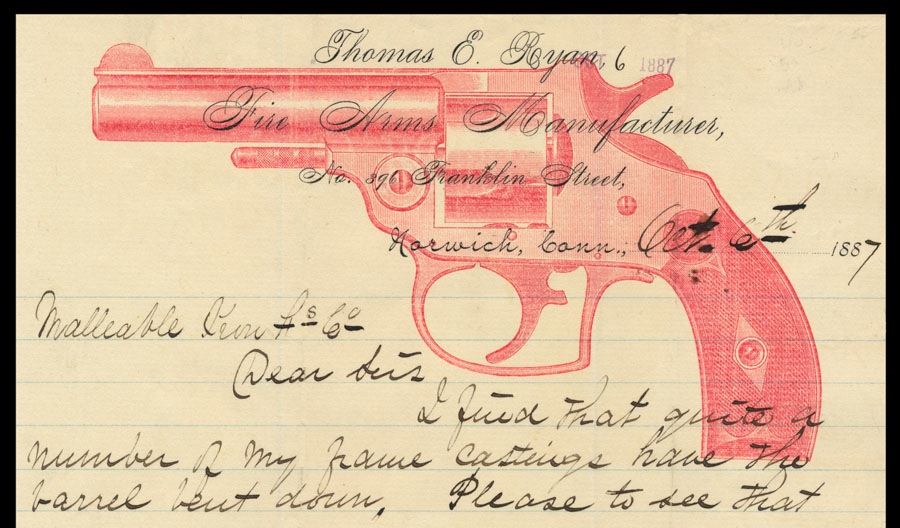 Thomas E. Ryan,
6 1887
Fire Arms Manufacturer,
No. 396 Franklin Street,
Norwich, Conn., Oct. 6th. 1887
Malleable Iron Co
Dear Sirs
I find that quite a
number of my frame castings have the
barrel bent down. Please to see that